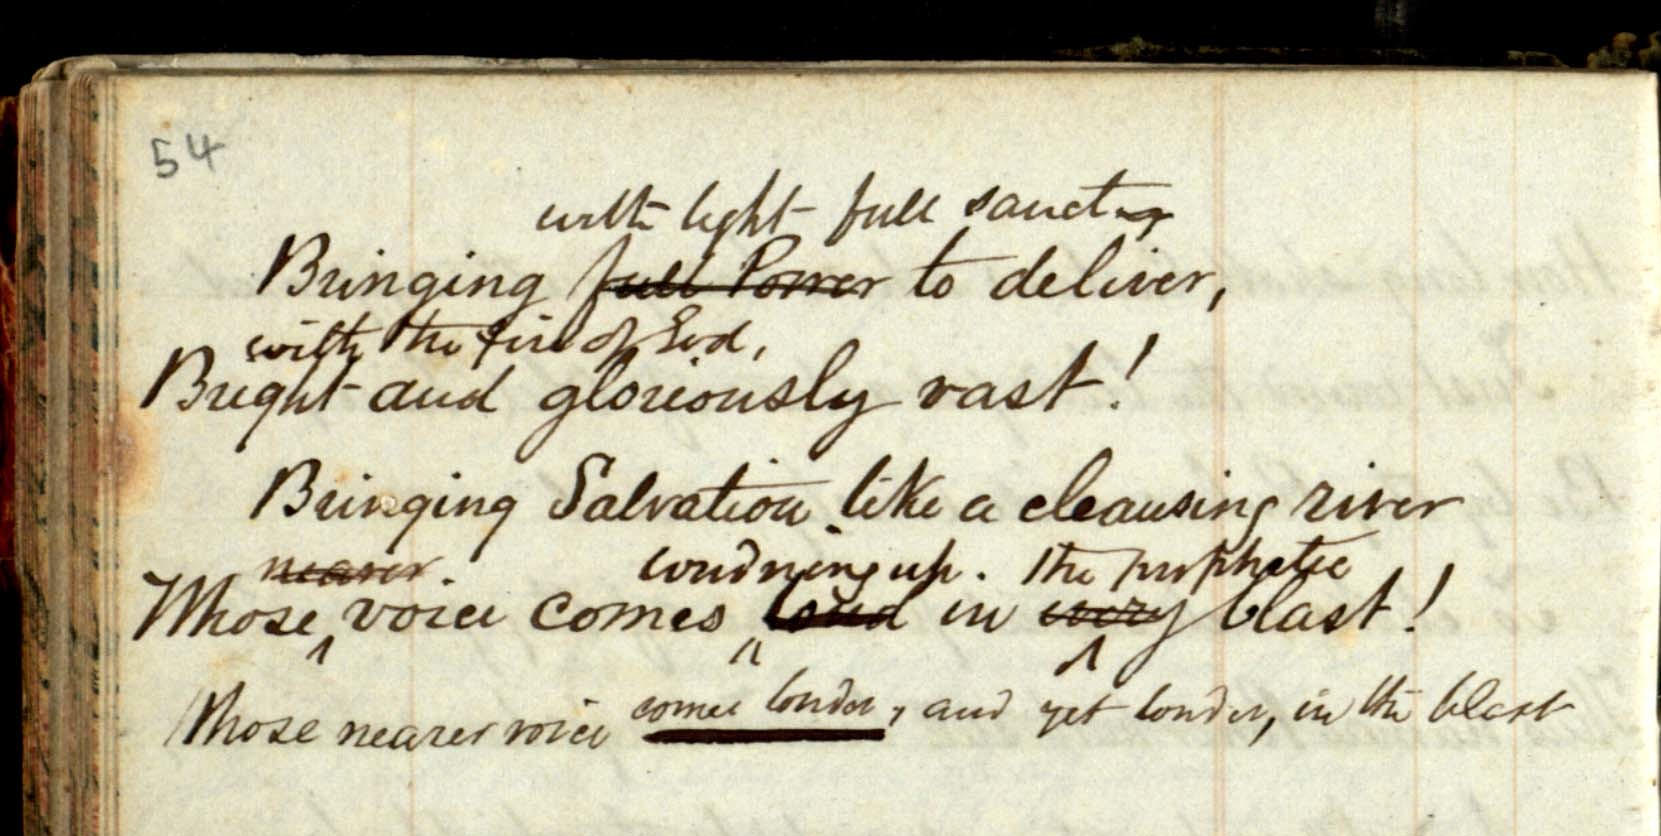 54
with light full sanct
Bringing full Power to deliver,
with the fire of God,
Bright and gloriously vast!
Bringing Salvation like a cleansing river
nearer. up. the prophetic
Whose voice comes loud in every blast!
Whose nearer voice comes louder, and yet louder, in the blast